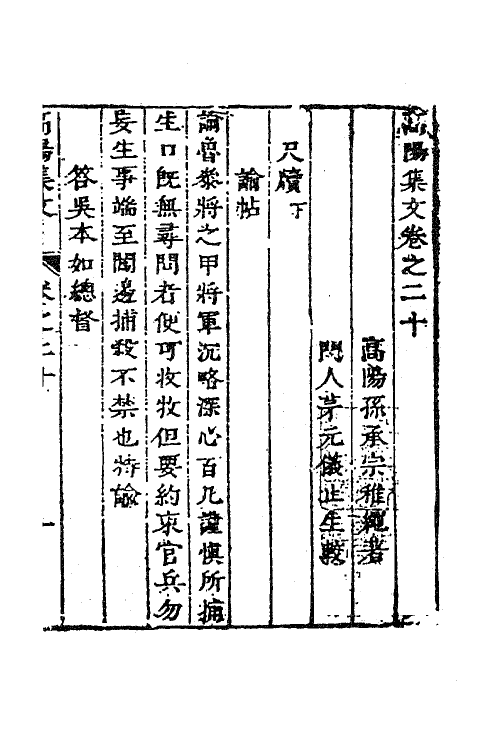 高陽集文卷之二十
高陽孫承宗稚繩著
門人茅元儀止生較
尺牘下
諭帖
諭魯叅將之甲將軍沉略深心百凡謹慎所捕
生口旣無尋問者便可收牧但要約束官兵勿
妄生事端至闌邊捕殺不禁也特諭
答吳本如總督
高陽集文
卷之二十
一